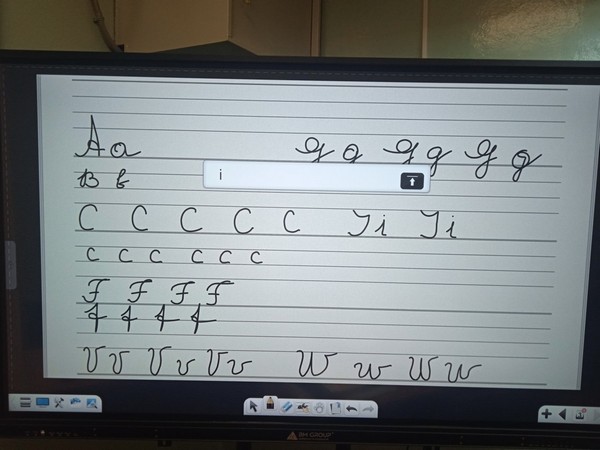 A a G g G g G g
B b
i
C C C C C I i I i
c c c c c c
F F F F
f f f f
V v V v V v W w W w